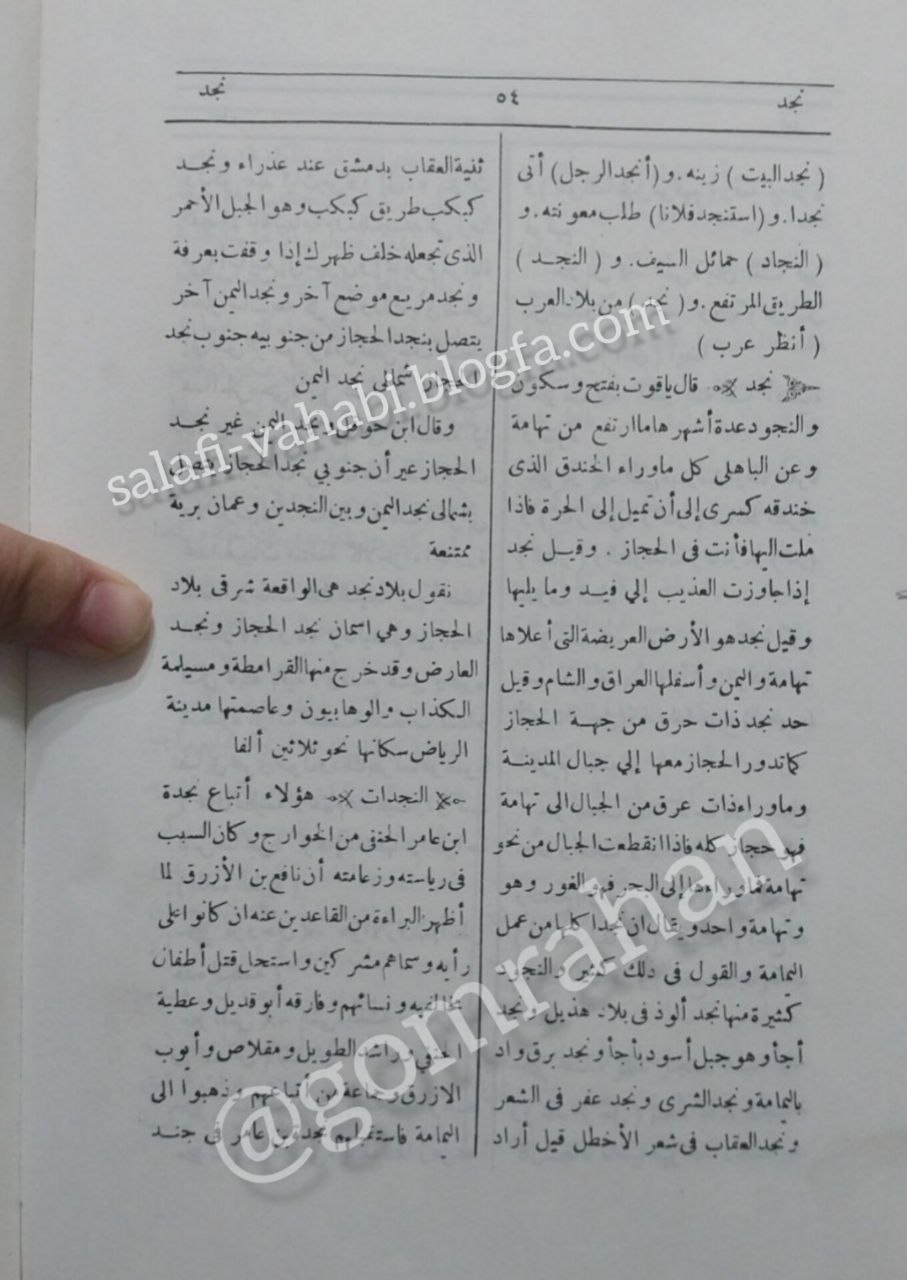 نجد
٥٤
نجد
( نجد البيت ) زينه . و (أنجد الرجل) أتى
نجدا . و (استنجد فلانا) طلب معونته . و
( النجاد ) حمائل السيف . و ( النجد )
الطريق المرتفع . و ( نجد ) من بلاد العرب
( أنظر عرب )
نجد قال ياقوت بفتح وسكون
والنجود عدة أشهرها ما ارتفع من تهامة
وعن الباهلى كل ما وراء الخندق الذى
خندقه كسرى إلى أن تميل إلى الحرة فاذا
ملت اليها فأنت فى الحجاز . وقيل نجد
إذا جاوزت العذيب إلي فيد وما يليها
وقيل نجد هو الأرض العريضة التى أعلاها
تهامة واليمن وأسفلها العراق والشام وقيل
حد نجد ذات حرق من جهة الحجاز
كما تدور الحجاز معها إلي جبال المدينة
وما وراء ذات عرق من الجبال الى تهامة
فهو حجاز كله فاذا انقطعت الجبال من نحو
تهامة فما وراءها إلى البحر فهو الغور وهو
وتهامة واحد ويقال ان نجدا كلها من عمل
اليمامة والقول فى ذلك كثير والنجود
كثيرة منها نجد ألوذ فى بلاد هذيل ونجد
أجأ وهو جبل أسود بأجأ ونجد برق واد
باليمامة ونجد الشرى ونجد عفر فى الشعر
ونجد العقاب فى شعر الأخطل قيل أراد
ثنية العقاب بدمشق عند عذراء ونجد
كبكب طريق كبكب وهو الجبل الأحمر
الذى تجعله خلف ظهرك إذا وقفت بعرفة
ونجد مريع موضع آخر ونجد اليمن آخر
يتصل بنجد الحجاز من جنوبيه جنوب نجد
الحجاز شمالى نجد اليمن
وقال ابن حوقل ونجد اليمن غير نجد
الحجاز غير أن جنوبي نجد الحجاز يتصل
بشمالى نجد اليمن وبين النجدين وعمان برية
ممتنعة
نقول بلاد نجد هى الواقعة شرقى بلاد
الحجاز وهي اسمان نجد الحجاز ونجد
العارض وقد خرج منها القرامطة ومسيلمة
الكذاب والوهابيون وعاصمتها مدينة
الرياض سكانها نحو ثلاثين ألفا
النجدات هؤلاء أتباع نجدة
ابن عامر الحنفى من الخوارج وكان السبب
فى رياسته وزعامته أن نافع بن الأزرق لما
أظهر البراءة من القاعدين عنه ان كانوا على
رأيه وسماهم مشركين واستحل قتل أطفال
مخالفيه ونسائهم وفارقه أبو قديل وعطية
الحنفى وراشد الطويل ومقلاص وأيوب
الازرق وجماعة من أتباعهم وذهبوا الى
اليمامة فاستقبلهم نجدة بن عامر فى جند
salafi-vahabi.blogfa.com
@gomrahan